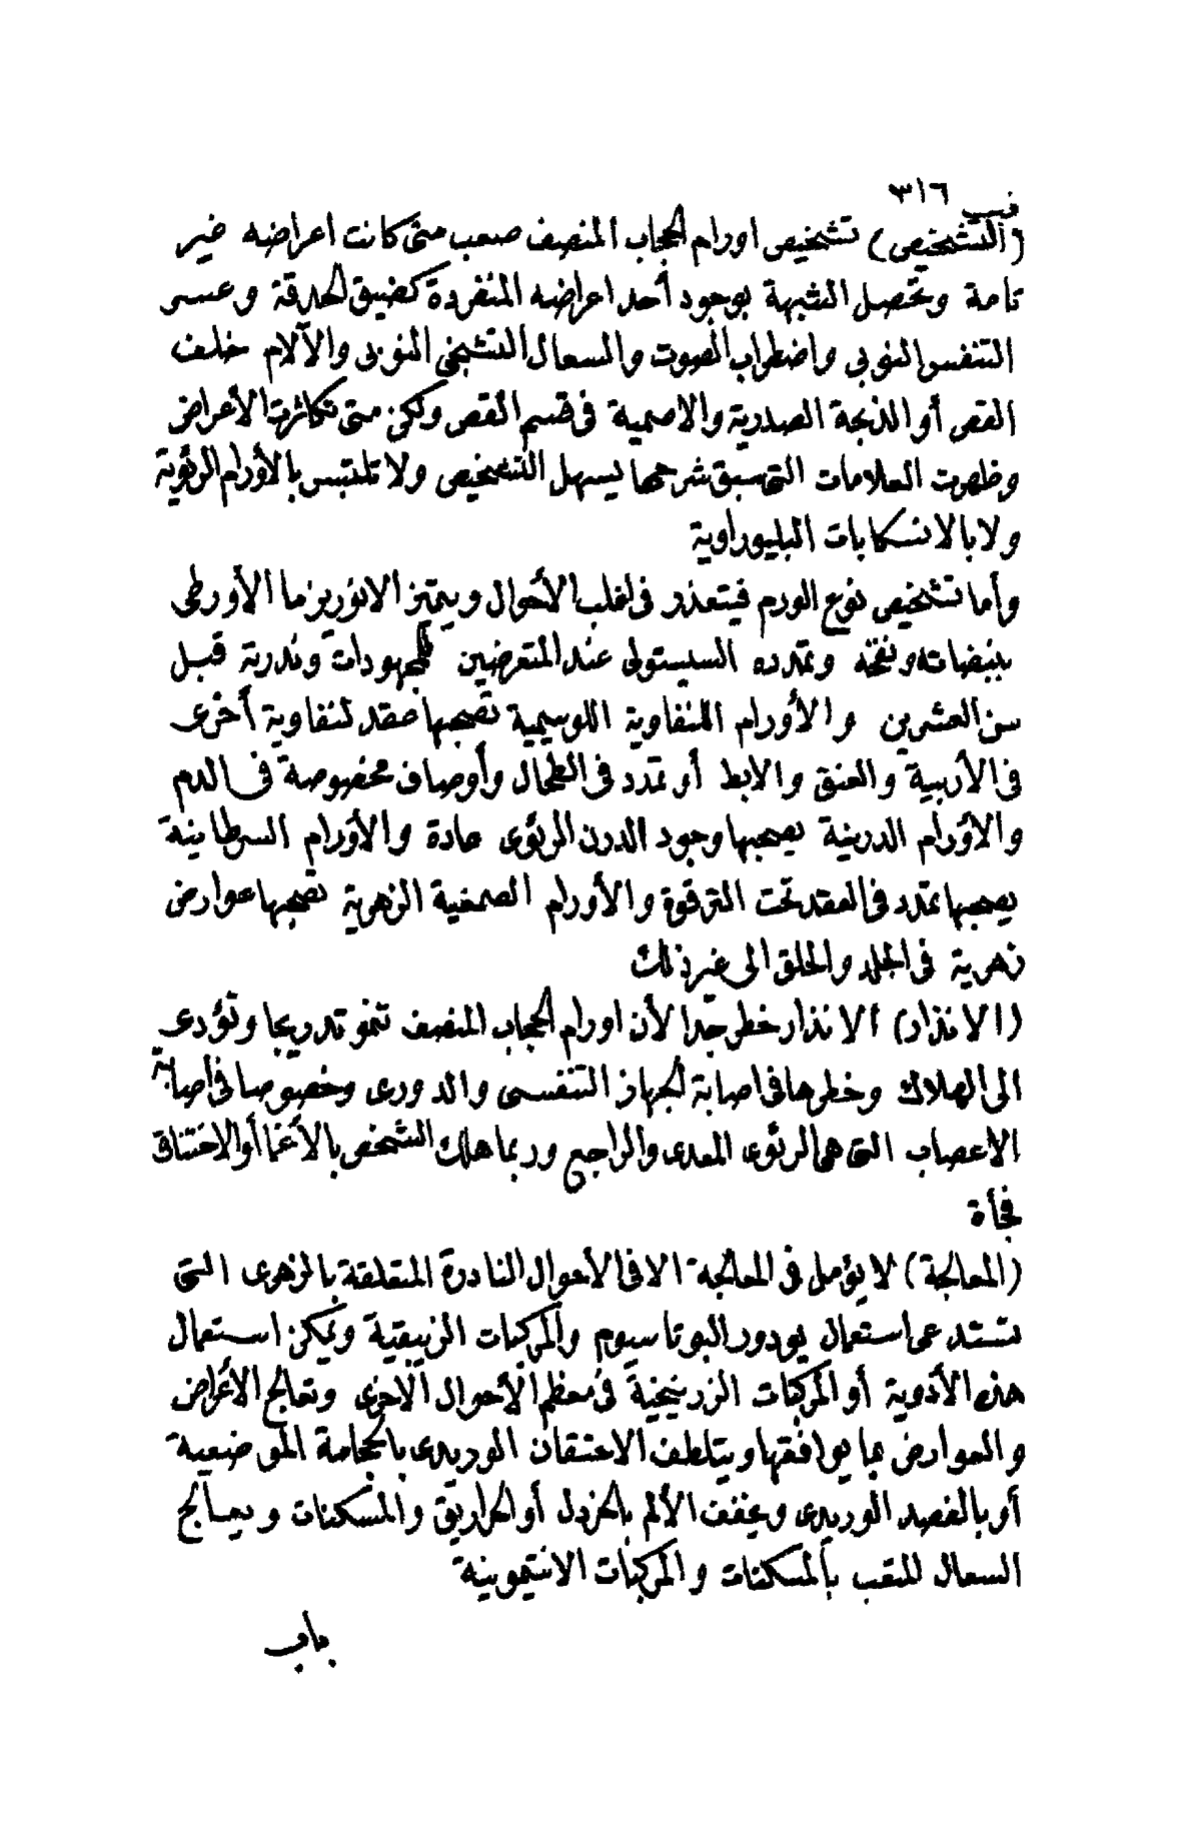 ٣١٦
(التشخيص) تشخيص اورام الحجاب المنصف صعب متى كانت اعراضه غير
تامة وتحصل الشبهة بوجود أحد اعراضه المنفردة كضيق الحدقة وعسر
التنفس النوبى واضطراب الصوت والسعال التشنجى النوبى والآلام خلف
القص أو الذبحة الصدرية والاصمية فى قسم القص ولكن متى تكاثرت الأعراض
وظهرت العلامات التى سبق شرحها يسهل التشخيص ولا تلتبس بالأورام الرئوية
ولا بالانسكابات البليوراوية
وأما تشخيص نوع الورم فيتعذر فى اغلب الأحوال ويتميز الانوريزما الأورطى
بنبضاته ونفخه وتمدده السيستولى عند المتعرضين للمجهودات وندرته قبل
سن العشرين والأورام اللنفاوية اللوسيمية تصحبها عقد لنفاوية أخرى
فى الأربية والعنق والابط أو تمدد فى الطحال وأوصاف مخصوصة فى الدم
والأورام الدرنية يصحبها وجود الدرن الرئوى عادة والأورام السرطانية
يصحبها تمدد فى العقد تحت الترقوة والأورام الصمغية الزهرية تصحبها عوارض
زهرية فى الجلد والحلق الى غير ذلك
(الانذار) الانذار خطر جدا لأن اورام الحجاب المنصف تنمو تدريجا وتؤدى
الى الهلاك وخطرها فى اصابة الجهاز التنفسى والدورى وخصوصا فى اصابة
الاعصاب التى هى الرئوى المعدى والراجع وربما هلك الشخص بالأغما أو الاختناق
فجأة
(المعالجة) لا يؤمل فى المعالجة الا فى الأحوال النادرة المتعلقة بالزهرى التى
تستدعى استعمال يودور البوتاسيوم والمركبات الزيبقية ويمكن استعمال
هذه الأدوية أو المركبات الزرنيخية فى معظم الأحوال الأخرى وتعالج الأعراض
والعوارض بما يوافقها ويتلطف الاحتقان الوريدى بالحجامة الموضعية
أو بالفصد الوريدى ويخفف الألم بالخردل أو الحراريق والمسكنات ويعالج
السعال المتعب بالمسكنات والمركبات الانتيمونية
باب